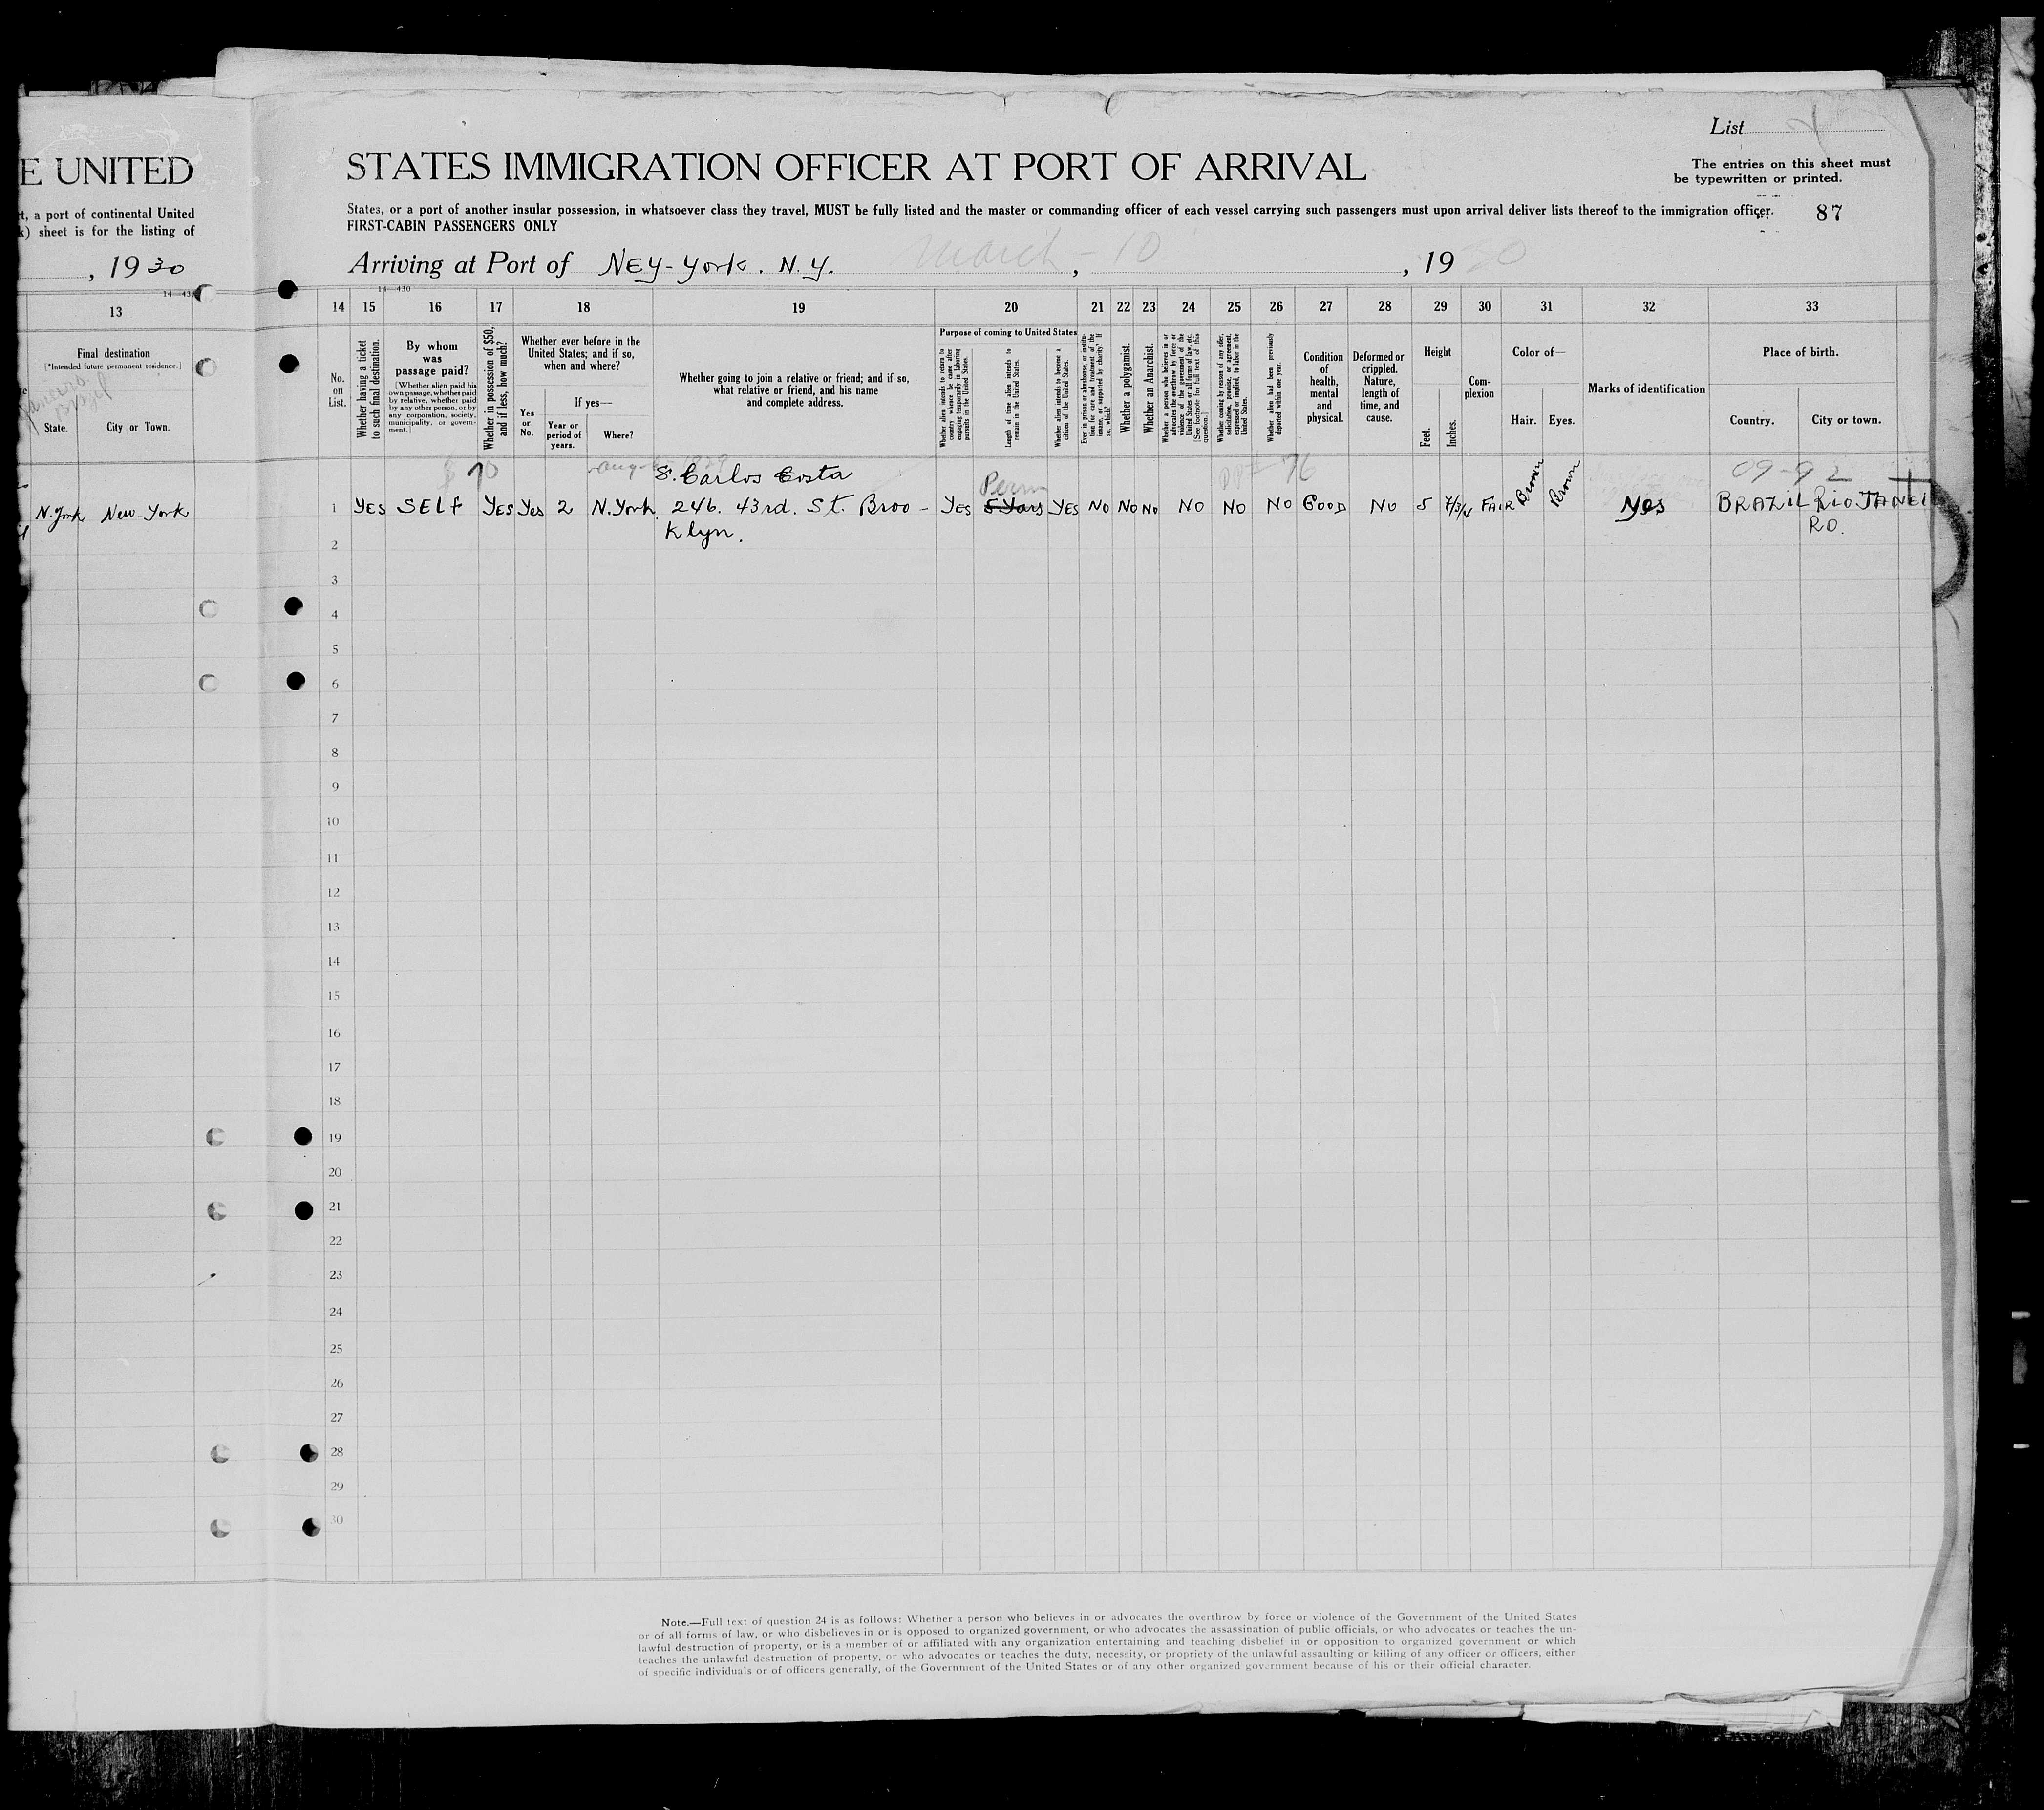 List
E UNITED STATES IMMIGRATION OFFICER AT PORT OF ARRIVAL
The entries on this sheet must
be typewritten or printed.
rt, a port of continental United
k) sheet is for the listing of
States, or a port of another insular possession, in whatsoever class they travel, MUST be fully listed and the master or commanding officer of each vessel carrying such passengers must upon arrival deliver lists thereof to the immigration officer.
87
FIRST-CABIN PASSENGERS ONLY
, 1930
Arriving at Port of NEY-York. N.Y. March - 10, , 1930
14—430
13
14 15 16 17 18 19 20 21 22 23 24 25 26 27 28 29 30 31 32 33
Final destination
[*Intended future permanent residence.]
State.
City or Town.
No.
on
List.
Whether having a ticket
to such final destination.
By whom
was
passage paid?
[Whether alien paid his
own passage, whether paid
by relative, whether paid
by any other person, or by
any corporation, society,
municipality, or govern-
ment.]
Whether in possession of $50,
and if less, how much?
Whether ever before in the
United States; and if so,
when and where?
Yes
or
No.
If yes—
Year or
period of
years.
Where?
Whether going to join a relative or friend; and if so,
what relative or friend, and his name
and complete address.
Purpose of coming to United States
Whether alien intends to return to
country whence he came after
engaging temporarily in laboring
pursuits in the United States.
Length of time alien intends to
remain in the United States.
Whether alien intends to become a
citizen of the United States.
Ever in prison or almshouse, or institu-
tion for care and treatment of the
insane, or supported by charity? If
so, which?
Whether a polygamist.
Whether an Anarchist.
Whether a person who believes in or
advocates the overthrow by force or
violence of the Government of the
United States or all forms of law, etc.
[See footnote for full text of this
question.]
Whether coming by reason of any offer,
solicitation, promise, or agreement,
expressed or implied, to labor in the
United States.
Whether alien had been previously
deported within one year.
Condition
of
health,
mental
and
physical.
Deformed or
crippled.
Nature,
length of
time, and
cause.
Height
Feet.
Inches.
Com-
plexion
Color of—
Hair.
Eyes.
Marks of identification
Place of birth.
Country.
City or town.
$ 70
S. Carlos Costa
Perm
76
09-92
N.York New-York
1 YES SELF YES Yes 2 N.York 246. 43rd. St. Broo - YES 5 Years YES NO NO NO NO NO NO GOOD NO 5 FAIR Brown Brown yes BRAZIL RIO JANEI
Klyn.
RO.
2
3
4
5
6
7
8
9
10
11
12
13
14
15
16
17
18
19
20
21
22
23
24
25
26
27
28
29
30
Note.—Full text of question 24 is as follows: Whether a person who believes in or advocates the overthrow by force or violence of the Government of the United States
or of all forms of law, or who disbelieves in or is opposed to organized government, or who advocates the assassination of public officials, or who advocates or teaches the un-
lawful destruction of property, or is a member of or affiliated with any organization entertaining and teaching disbelief in or opposition to organized government or which
teaches the unlawful destruction of property, or who advocates or teaches the duty, necessity, or propriety of the unlawful assaulting or killing of any officer or officers, either
of specific individuals or of officers generally, of the Government of the United States or of any other organized government because of his or their official character.